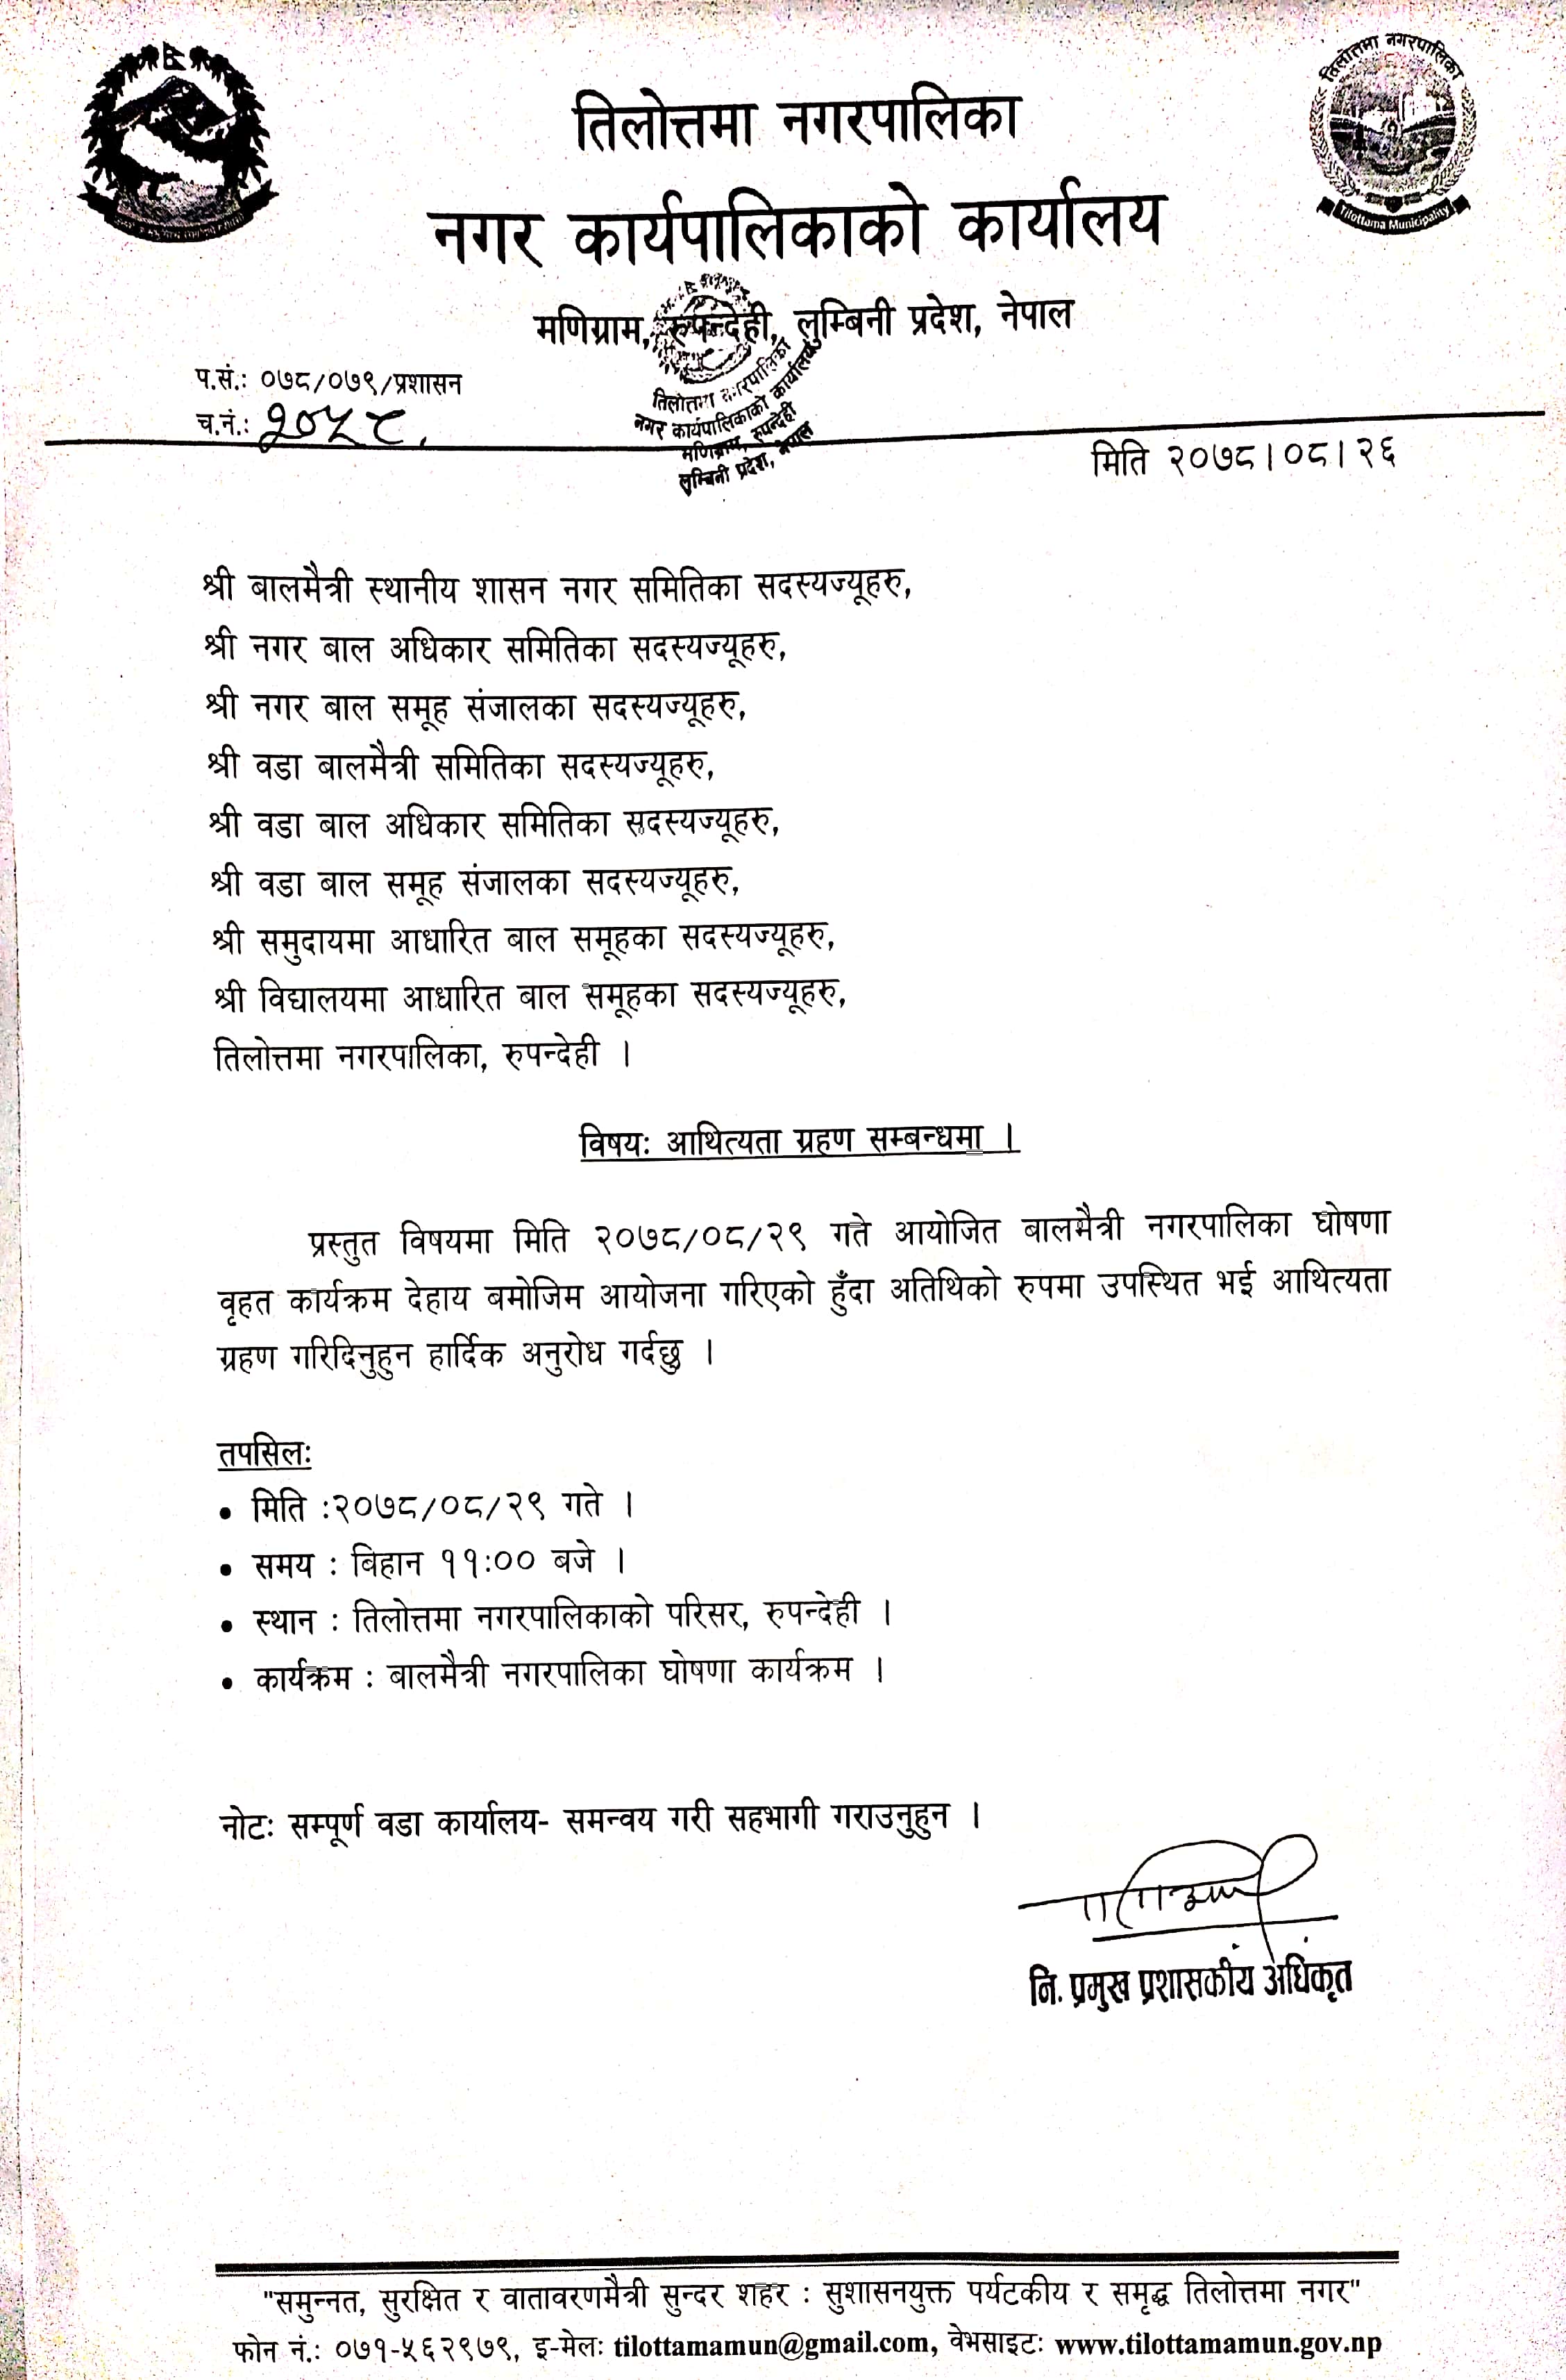 तिलोत्तमा नगरपालिका
तिलोत्तमा नगरपालिका
Tilottama Municipality
नगर कार्यपालिकाको कार्यालय
मणिग्राम, रुपन्देही, लुम्बिनी प्रदेश, नेपाल
तिलोत्तमा नगरपालिका
नगर कार्यपालिकाको कार्यालय
मणिग्राम, रुपन्देही
लुम्बिनी प्रदेश, नेपाल
प.सं.: ०७८/०७९/प्रशासन
च.नं.: २०५८.
मिति २०७८।०८।२६
श्री बालमैत्री स्थानीय शासन नगर समितिका सदस्यज्यूहरु,
श्री नगर बाल अधिकार समितिका सदस्यज्यूहरु,
श्री नगर बाल समूह संजालका सदस्यज्यूहरु,
श्री वडा बालमैत्री समितिका सदस्यज्यूहरु,
श्री वडा बाल अधिकार समितिका सदस्यज्यूहरु,
श्री वडा बाल समूह संजालका सदस्यज्यूहरु,
श्री समुदायमा आधारित बाल समूहका सदस्यज्यूहरु,
श्री विद्यालयमा आधारित बाल समूहका सदस्यज्यूहरु,
तिलोत्तमा नगरपालिका, रुपन्देही ।
विषयः आथित्यता ग्रहण सम्बन्धमा ।
प्रस्तुत विषयमा मिति २०७८/०८/२९ गते आयोजित बालमैत्री नगरपालिका घोषणा
वृहत कार्यक्रम देहाय बमोजिम आयोजना गरिएको हुँदा अतिथिको रुपमा उपस्थित भई आथित्यता
ग्रहण गरिदिनुहुन हार्दिक अनुरोध गर्दछु ।
तपसिलः
• मिति :२०७८/०८/२९ गते ।
• समय : बिहान ११:०० बजे ।
• स्थान : तिलोत्तमा नगरपालिकाको परिसर, रुपन्देही ।
• कार्यक्रम : बालमैत्री नगरपालिका घोषणा कार्यक्रम ।
नोटः सम्पूर्ण वडा कार्यालय- समन्वय गरी सहभागी गराउनुहुन ।
नि. प्रमुख प्रशासकीय अधिकृत
"समुन्नत, सुरक्षित र वातावरणमैत्री सुन्दर शहर : सुशासनयुक्त पर्यटकीय र समृद्ध तिलोत्तमा नगर"
फोन नं.: ०७१-५६२९७९, इ-मेलः tilottamamun@gmail.com, वेभसाइटः www.tilottamamun.gov.np